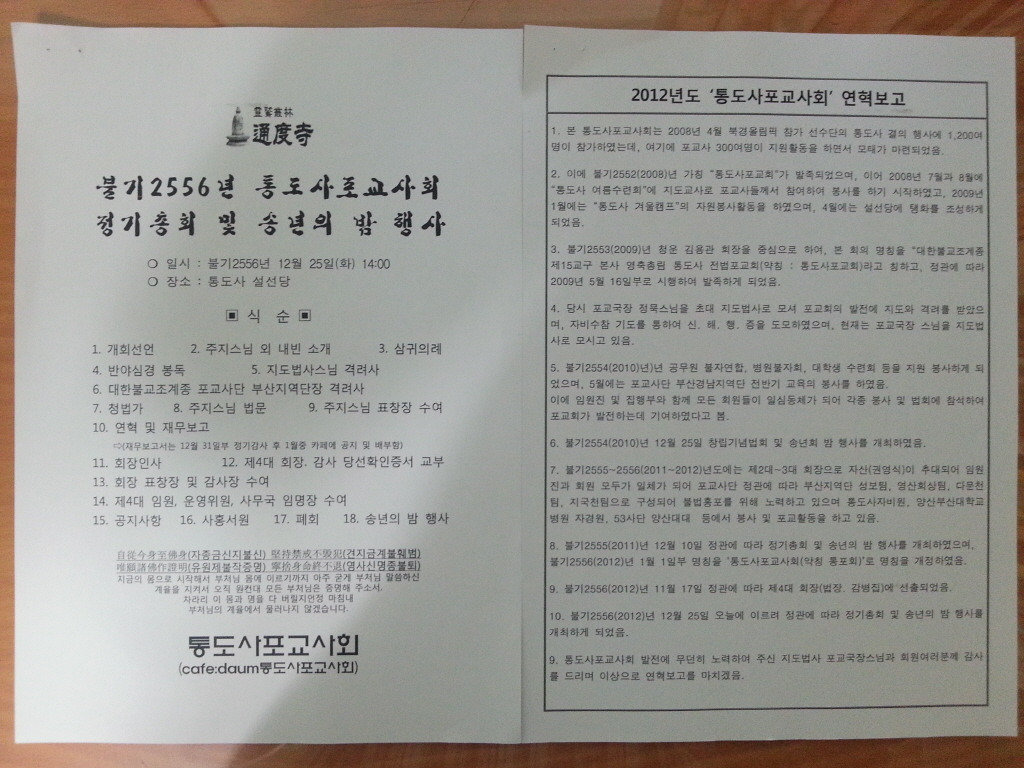 靈鷲叢林
通度寺
불기2556년 통도사포교사회
정기총회 및 송년의 밤 행사
❍ 일시 : 불기2556년 12월 25일(화) 14:00
❍ 장소 : 통도사 설선당
▣ 식 순 ▣
1. 개회선언 2. 주지스님 외 내빈 소개 3. 삼귀의례
4. 반야심경 봉독 5. 지도법사스님 격려사
6. 대한불교조계종 포교사단 부산지역단장 격려사
7. 청법가 8. 주지스님 법문 9. 주지스님 표창장 수여
10. 연혁 및 재무보고
⇨(재무보고서는 12월 31일부 정기감사 후 1월중 카페에 공지 및 배부함)
11. 회장인사 12. 제4대 회장. 감사 당선확인증서 교부
13. 회장 표창장 및 감사장 수여
14. 제4대 임원, 운영위원, 사무국 임명장 수여
15. 공지사항 16. 사홍서원 17. 폐회 18. 송년의 밤 행사
自從今身至佛身(자종금신지불신) 堅持禁戒不毁犯(견지금계불훼범)
唯願諸佛作證明(유원제불작증명) 寧捨身命終不退(영사신명종불퇴)
지금의 몸으로 시작해서 부처님 몸에 이르기까지 아주 굳게 부처님 말씀하신
계율을 지켜서 오직 원컨대 모든 부처님은 증명해 주소서.
차라리 이 몸과 명을 다 버릴지언정 마침내
부처님의 계율에서 물러나지 않겠습니다.
통도사포교사회
(cafe:daum통도사포교사회)
2012년도 ‘통도사포교사회’ 연혁보고
1. 본 통도사포교사회는 2008년 4월 북경올림픽 참가 선수단의 통도사 결의 행사에 1,200여
명이 참가하였는데, 여기에 포교사 300여명이 지원활동을 하면서 모태가 마련되었음.
2. 이에 불기2552(2008)년 가칭 “통도사포교회”가 발족되었으며, 이어 2008년 7월과 8월에
“통도사 여름수련회”에 지도교사로 포교사들께서 참여하여 봉사를 하기 시작하였고, 2009년
1월에는 “통도사 겨울캠프”의 자원봉사활동을 하였으며, 4월에는 설선당에 탱화를 조성하게
되었음.
3. 불기2553(2009)년 청운 김용관 회장을 중심으로 하여, 본 회의 명칭을 “대한불교조계종
제15교구 본사 영축총림 통도사 전법포교회(약칭 : 통도사포교회)라고 칭하고, 정관에 따라
2009년 5월 16일부로 시행하여 발족하게 되었음.
4. 당시 포교국장 정묵스님을 초대 지도법사로 모셔 포교회의 발전에 지도와 격려를 받았으
며, 자비수참 기도를 통하여 신. 해. 행. 증을 도모하였으며, 현재는 포교국장 스님을 지도법
사로 모시고 있음.
5. 불기2554(2010)년)년 공무원 불자연합, 병원불자회, 대학생 수련회 등을 지원 봉사하게 되
었으며, 5월에는 포교사단 부산경남지역단 전반기 교육의 봉사를 하였음.
이에 임원진 및 집행부와 함께 모든 회원들이 일심동체가 되어 각종 봉사 및 법회에 참석하여
포교회가 발전하는데 기여하였다고 봄.
6. 불기2554(2010)년 12월 25일 창립기념법회 및 송년회 밤 행사를 개최하였음.
7. 불기2555~2556(2011~2012)년도에는 제2대~3대 회장으로 자산(권영식)이 추대되어 임원
진과 회원 모두가 일체가 되어 포교사단 정관에 따라 부산지역단 성보팀, 영산회상팀, 다운천
팀, 지국천팀으로 구성되어 불법홍포를 위해 노력하고 있으며 통도사자비원, 양산부산대학교
병원 자경원, 53사단 양산대대 등에서 봉사 및 포교활동을 하고 있음.
8. 불기2555(2011)년 12월 10일 정관에 따라 정기총회 및 송년의 밤 행사를 개최하였으며,
불기2556(2012)년 1월 1일부 명칭을 ‘통도사포교사회(약칭 통포회)’로 명칭을 개정하였음.
9. 불기2556(2012)년 11월 17일 정관에 따라 제4대 회장(법장, 감병집)에 선출되었음.
10. 불기2556(2012)년 12월 25일 오늘에 이르러 정관에 따라 정기총회 및 송년의 밤 행사를
개최하게 되었음.
9. 통도사포교사회 발전에 무던히 노력하여 주신 지도법사 포교국장스님과 회원여러분께 감사
를 드리며 이상으로 연혁보고를 마치겠음.